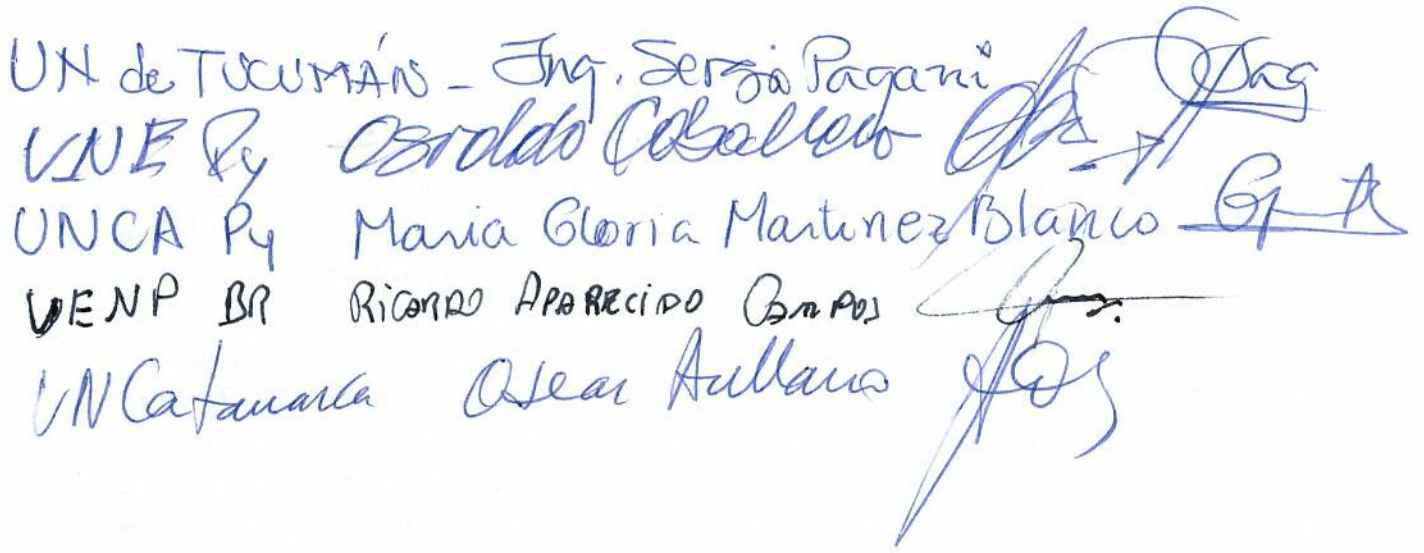 UN de TUCUMÁN - Ing. Sergio Pagani
UNE Py Osvaldo Caballero
UNCA Py Maria Gloria Martinez Blanco
UENP BR RicARDO APARECIDO CAMPOS
UN Catamarca Oscar Arellano